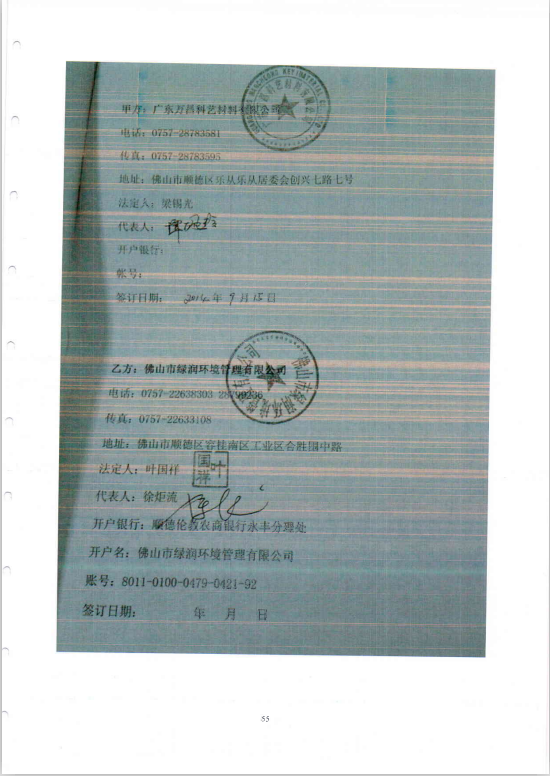 甲方：广东万昌科艺材料有限公司
电话：0757-28783581
传真：0757-28783595
地址：佛山市顺德区乐从乐从居委会创兴七路七号
法定人：梁锡光
代表人：
开户银行：
帐号：
签订日期： 2014年9月15日
乙方：佛山市绿润环境管理有限公司
电话：0757-22638303 28799236
传真：0757-22633108
地址：佛山市顺德区容桂南区工业区会胜围中路
法定人：叶国祥
叶国祥
代表人：徐炬流
开户银行：顺德伦教农商银行永丰分理处
开户名：佛山市绿润环境管理有限公司
账号：8011-0100-0479-0421-92
签订日期： 年 月 日
55